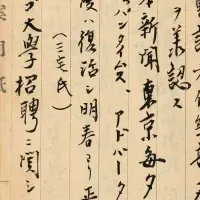 ヲ承認ス
本新聞東京毎夕
パンタイムス、アドバータ
度ハ復活シ明春ヨリ正
(三宅氏)
ブ大學招聘ニ関シ
案用紙